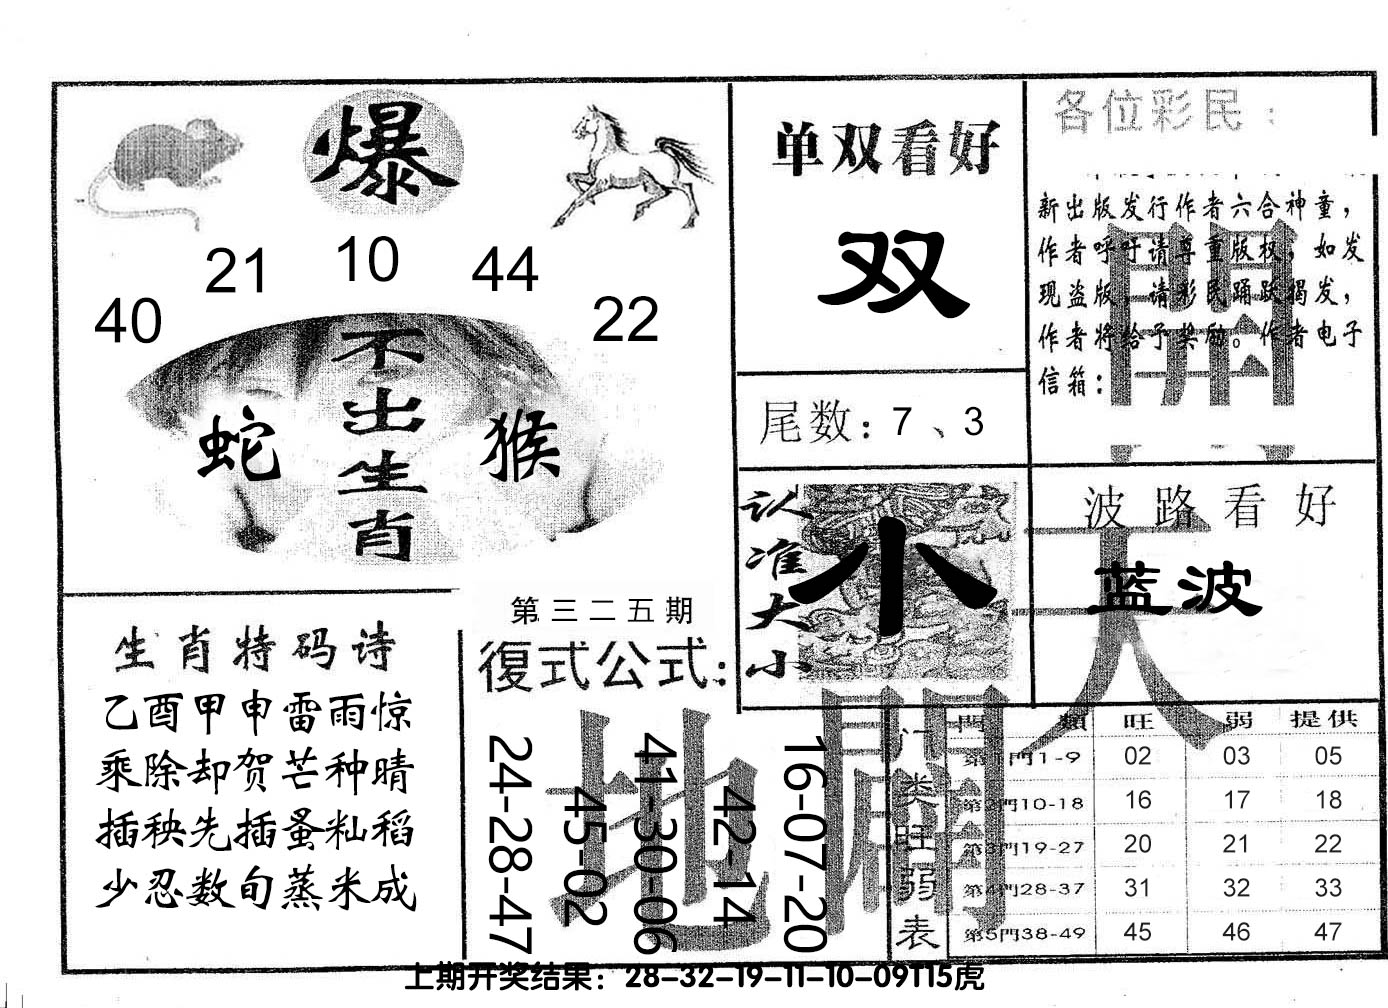 爆
40
21
10
44
22
不出生肖
蛇
猴
单双看好
双
尾数：7、3
各位彩民：
新出版发行作者六合神童，
作者呼吁请尊重版权，如发
现盗版，请彩民踊跃揭发，
作者将给予奖励。作者电子
信箱：
認准大小
小
波路看好
蓝波
天
開
生肖特码诗
乙酉甲申雷雨惊
乘除却贺芒种晴
插秧先插蚤籼稻
少忍数旬蒸米成
第三二五期
復式公式：
24-28-47
45-02
41-30-06
42-14
16-07-20
地
開
门类旺弱表
門類 旺 弱 提供
第1門1-9 02 03 05
第2門10-18 16 17 18
第3門19-27 20 21 22
第4門28-37 31 32 33
第5門38-49 45 46 47
上期开奖结果：28-32-19-11-10-09T15虎